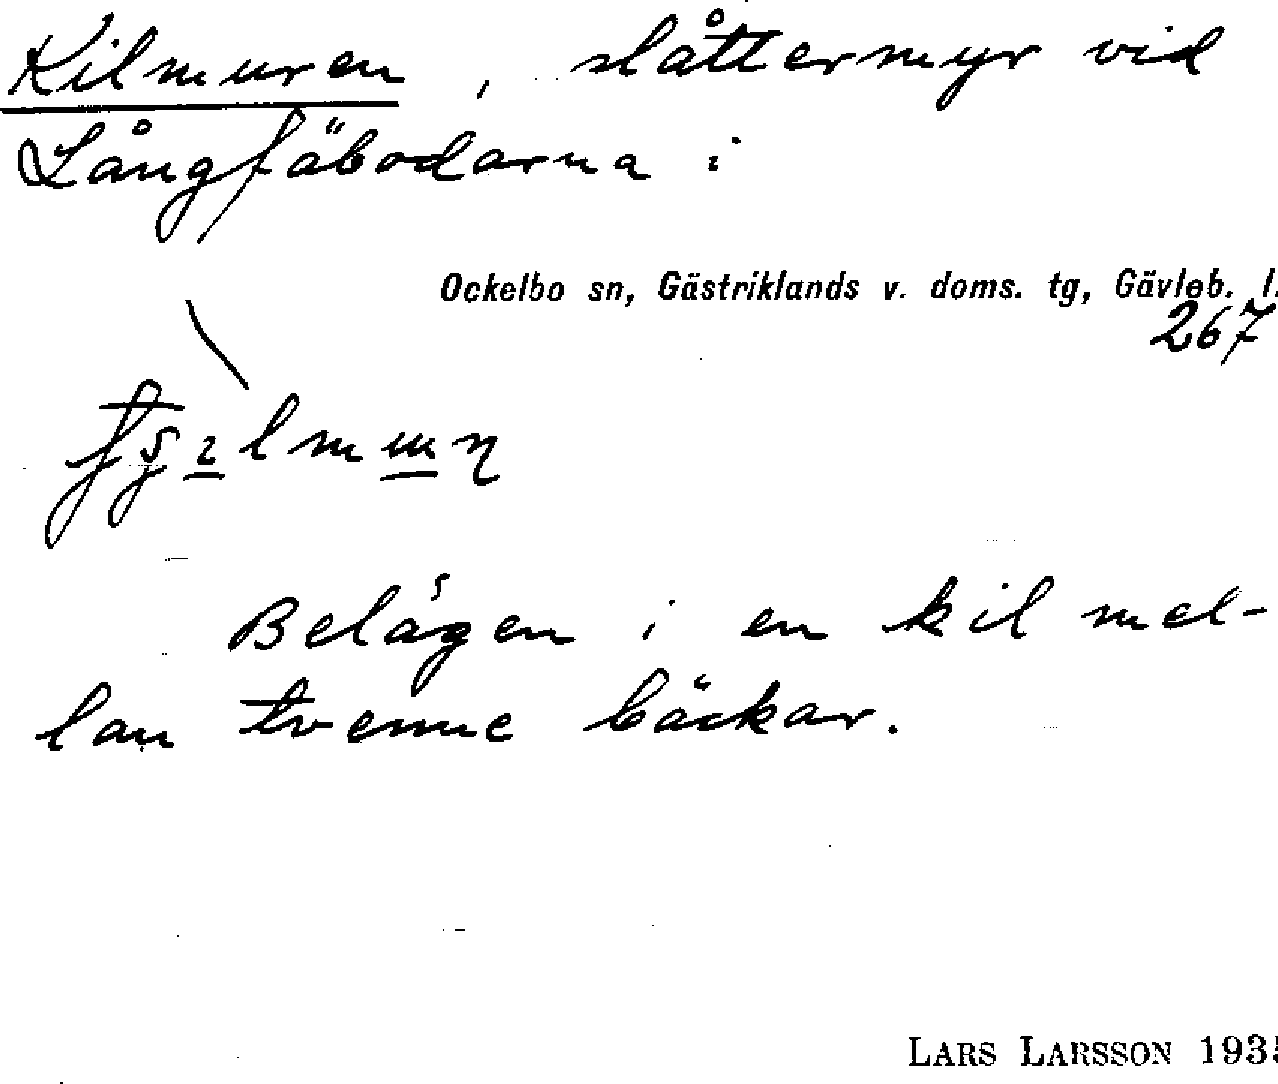 Kilmuren, slåttermyr vid
Långfäbodarna i
Ockelbo sn, Gästriklands v. doms. tg, Gävleb. l.
267
Belägen i en kil mel-
lan tvenne bäckar.
LARS LARSSON 1935